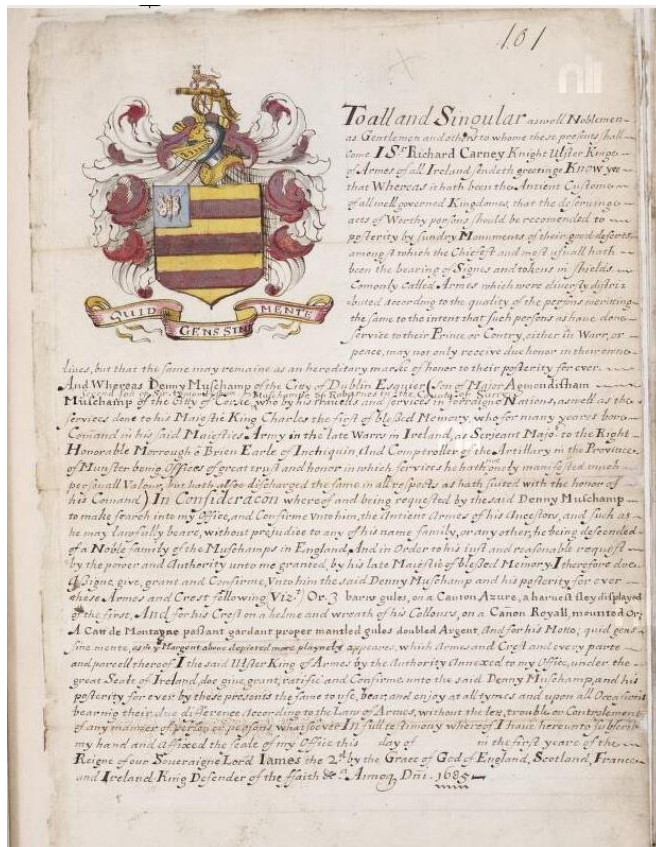 101
nli
To all and Singular aswell Noblemen
as Gentlemen and others to whome these presents shall
come I Sr Richard Carney Knight Ulster Kinge
of Armes of all Ireland sendeth greetinge Know yee
that Whereas it hath been the Antient Custome
of all well governed Kingdomes, that the deserving
acts of Worthy persons should be recomended to
posterity by sundry Monuments of their good deserts
amongst which the Chiefest and most usuall hath
been the bearing of Signes and tokens in shields
Comonly Called Armes which were diversly distri
buted according to the quality of the persons meriting
the same to the intent that such persons as have done
service to their Prince or Contry, either in Warr, or
QUID GENS SINE MENTE
peace, may not only receive due honor in their owne
lives, but that the same may remaine as an hereditary marke of honor to their posterity for ever
And Whereas Denny Muschamp of the City of Dublin Esquier (son of Major Agmondisham
Second son of Muschampe of Robarnes in the County of Surry
Muschamp of the City of Corke, who by his travells and services in forraigne Nations, aswell as the
services done to his Majestie King Charles the first of blessed Memory, who for many yeares bore
Comand in his said Majesties Army in the late Warrs in Ireland, as Serjeant Major to the Right
Honorable Morrough ô Brien Earle of Inchiquin, And Comptroller of the Artillary in the Province
of Munster being Offices of great trust and honor in which services he hath not only manifested much
personall Valour, but hath allso discharged the same in all respects as hath suited with the honor of
his Comand) In Consideracon whereof and being requested by the said Denny Muschamp
to make search into my Office, and Confirme unto him, the Antient Armes of his Ancestors, and such as
he may lawfully beare, without prejudice to any of his name family, or any other, he being descended
of a Noble family of the Muschamps in England, And in Order to his iust and reasonable request
by the power and Authority unto me granted by his late Majestie of blessed Memory I therefore doe
Assigne, give, grant and Confirme, Unto him the said Denny Muschamp and his posterity for ever
these Armes and Crest following Vizt) Or. 3 barrs gules, on a Canton Azure, a harvest fley displayed
of the first, And for his Crest on a helme and wreath of his Collours, on a Canon Royall, mounted Or,
A Catt de Montagne passant gardant proper mantled gules doubled Argent, And for his Motto, quid gens
sine mente, as in ye Margent above depicted more playnely appeares, which Armes and Crest and every parte
and parcell thereof I the said Ulster King of Armes by the Authority Annexed to my Office, under the
great Seale of Ireland, doe give, grant, ratifie and Confirme unto the said Denny Muschamp, and his
posterity for ever by these presents the same to use, beare, and enjoy at all tymes and upon all Occasions
bearing their due difference According to the Law of Armes, without the lett, trouble or Controlement
of any manner of person or persons whatsoever In full testimony whereof I have hereunto subscribed
my hand and affixed the seale of my Office this day of in the first yeare of the
Reigne of our Soveraigne Lord Iames the 2d by the Grace of God of England, Scotland, France
and Ireland King Defender of the ffaith &ca Annoq Dni. 1685